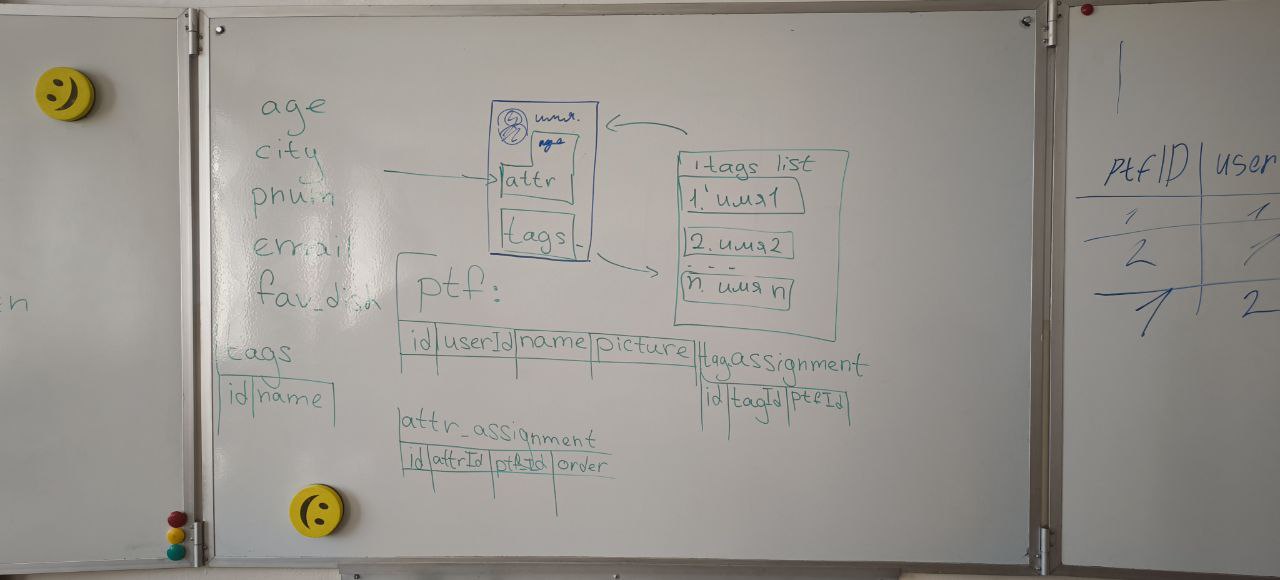 age
city
phum
email
fav_dish
имя.
age
attr
tags
tags list
1. имя1
2. имя2
...
n. имя n
ptf:
id userId name picture
tags
id name
tagassignment
id tagId ptfId
attr_assignment
id attrId ptfId order
ptfID user
1 1
2 1
1 2
n